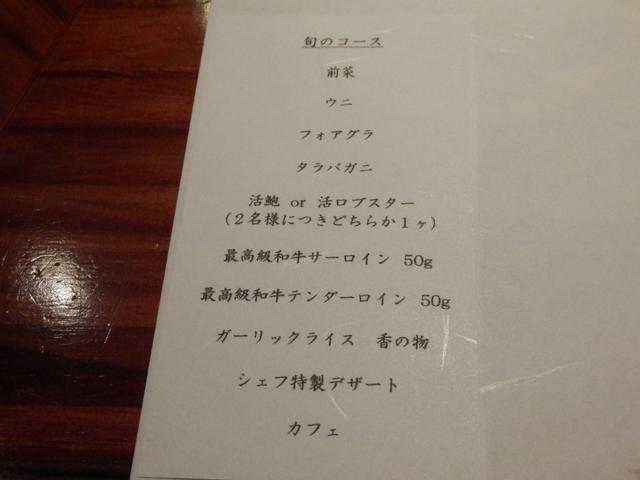 旬のコース
前菜
ウニ
フォアグラ
タラバガニ
活鮑 or 活ロブスター
(2名様につきどちらか1ヶ)
最高級和牛サーロイン 50g
最高級和牛テンダーロイン 50g
ガーリックライス 香の物
シェフ特製デザート
カフェ